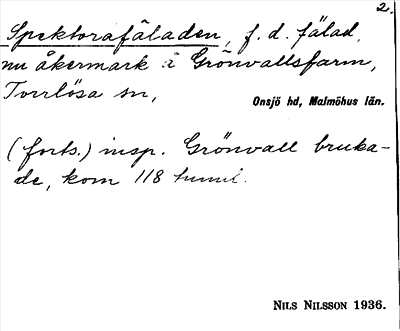 2.
Spektorafäladen, f.d. fälad,
nu åkermark å Grönvallsfarm,
Torrlösa sn,
Onsjö hd, Malmöhus län.
(forts.) insp. Grönvall bruka-
de, kom 118 tunnl.
NILS NILSSON 1936.